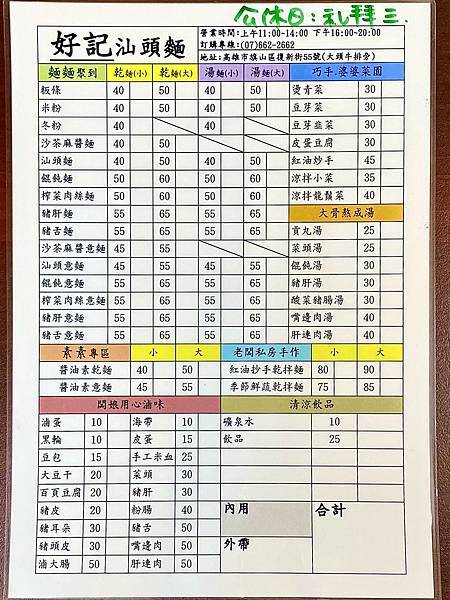 公休日：礼拜三.
好記汕頭麵
營業時間:上午11:00-14:00 下午16:00-20:00
訂購專線:(07)662-2662
地址:高雄市旗山區復新街55號(大頭牛排旁)
麵麵聚到 乾麵(小) 乾麵(大) 湯麵(小) 湯麵(大) 巧手.婆婆菜園
粄條 40 50 40 50 燙青菜 30
米粉 40 50 40 50 豆芽菜 30
冬粉 40 40 豆芽韭菜 30
沙茶麻醬麵 40 50 皮蛋豆腐 30
汕頭麵 40 50 40 50 紅油炒手 45
餛飩麵 50 60 50 60 涼拌小菜 35
榨菜肉絲麵 50 60 50 60 涼拌龍鬚菜 40
豬肝麵 55 65 55 65 大骨熬成湯
豬舌麵 55 65 55 65 貢丸湯 25
沙茶麻醬意麵 45 55 菜頭湯 25
汕頭意麵 45 55 45 55 餛飩湯 30
餛飩意麵 55 65 55 65 豬肝湯 30
榨菜肉絲意麵 55 65 55 65 酸菜豬腸湯 30
豬肝意麵 55 65 55 65 嘴邊肉湯 40
豬舌意麵 55 65 55 65 肝連肉湯 40
素素專區 小 大 老闆私房手作 小 大
醬油素乾麵 40 50 紅油炒手乾拌麵 80 90
醬油素意麵 45 55 季節鮮蔬乾拌麵 75 85
闆娘用心滷味 清涼飲品
滷蛋 10 海帶 10 礦泉水 10
黑輪 10 皮蛋 15 飲品 25
豆包 15 手工米血 25
大豆干 20 菜頭 30
百頁豆腐 20 豬肝 30
豬皮 20 粉腸 40 內用 合計
豬耳朵 30 豬舌 50
豬頭皮 30 嘴邊肉 50 外帶
滷大腸 50 肝連肉 50